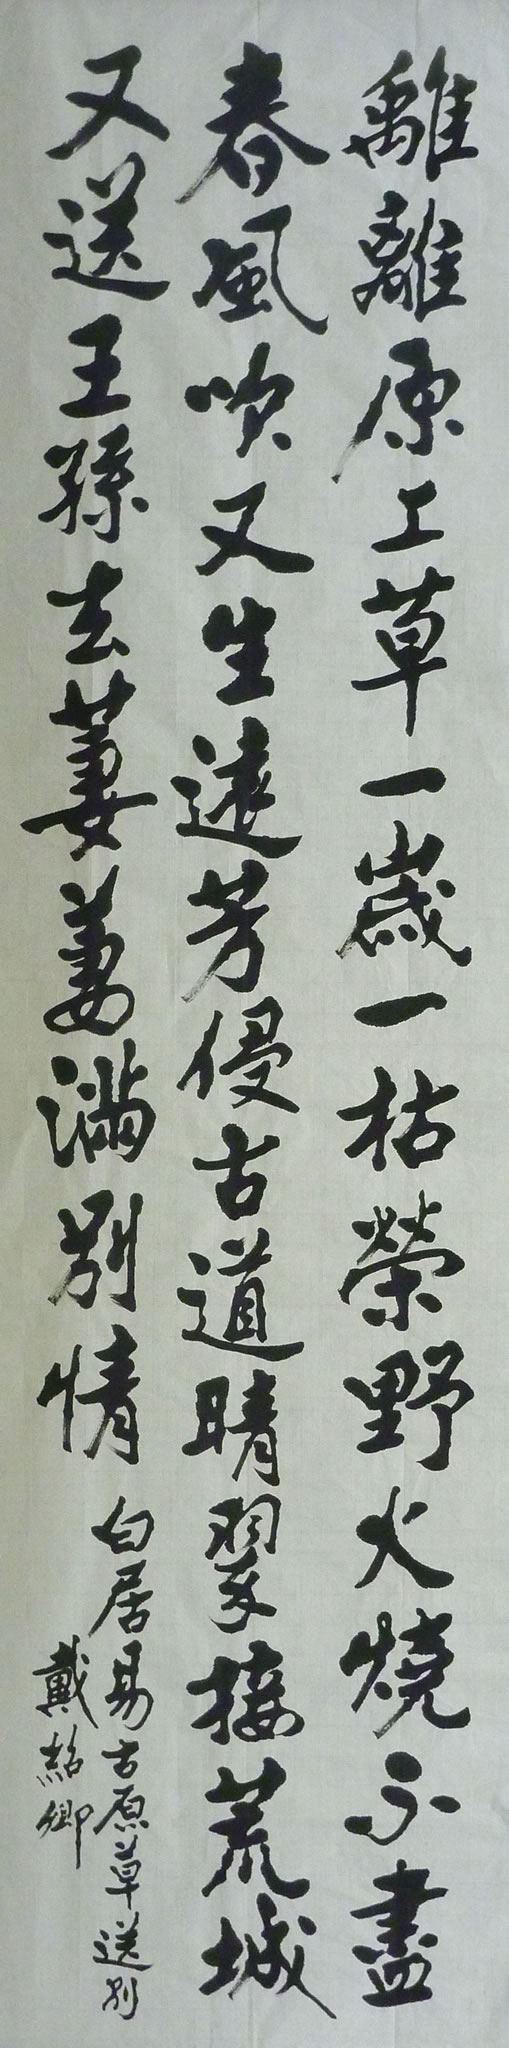 離離原上草一歲一枯榮野火燒不盡
春風吹又生遠芳侵古道晴翠接荒城
又送王孫去萋萋滿別情
白居易古原草送別
戴紹卿